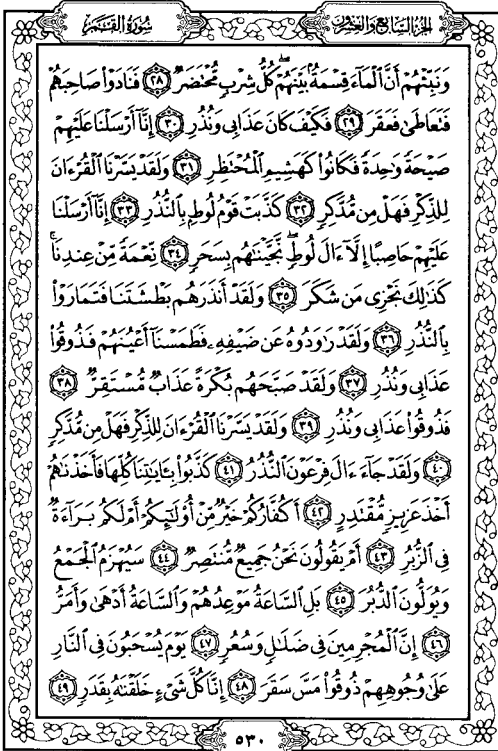 سُورَةُ القَمَرِ الجُزءُ السَّابِعُ وَالعِشْرُون
وَنَبِّئْهُمْ أَنَّ ٱلْمَآءَ قِسْمَةٌۢ بَيْنَهُمْ ۖ كُلُّ شِرْبٍ مُّحْتَضَرٌ ﴿٢٨﴾ فَنَادَوْا۟ صَاحِبَهُمْ
فَتَعَاطَىٰ فَعَقَرَ ﴿٢٩﴾ فَكَيْفَ كَانَ عَذَابِى وَنُذُرِ ﴿٣٠﴾ إِنَّآ أَرْسَلْنَا عَلَيْهِمْ
صَيْحَةً وَٰحِدَةً فَكَانُوا۟ كَهَشِيمِ ٱلْمُحْتَظِرِ ﴿٣١﴾ وَلَقَدْ يَسَّرْنَا ٱلْقُرْءَانَ
لِلذِّكْرِ فَهَلْ مِن مُّدَّكِرٍ ﴿٣٢﴾ كَذَّبَتْ قَوْمُ لُوطٍۭ بِٱلنُّذُرِ ﴿٣٣﴾ إِنَّآ أَرْسَلْنَا
عَلَيْهِمْ حَاصِبًا إِلَّآ ءَالَ لُوطٍ ۖ نَّجَّيْنَٰهُم بِسَحَرٍ ﴿٣٤﴾ نِّعْمَةً مِّنْ عِندِنَا ۚ
كَذَٰلِكَ نَجْزِى مَن شَكَرَ ﴿٣٥﴾ وَلَقَدْ أَنذَرَهُم بَطْشَتَنَا فَتَمَارَوْا۟
بِٱلنُّذُرِ ﴿٣٦﴾ وَلَقَدْ رَٰوَدُوهُ عَن ضَيْفِهِۦ فَطَمَسْنَآ أَعْيُنَهُمْ فَذُوقُوا۟
عَذَابِى وَنُذُرِ ﴿٣٧﴾ وَلَقَدْ صَبَّحَهُم بُكْرَةً عَذَابٌ مُّسْتَقِرٌّ ﴿٣٨﴾
فَذُوقُوا۟ عَذَابِى وَنُذُرِ ﴿٣٩﴾ وَلَقَدْ يَسَّرْنَا ٱلْقُرْءَانَ لِلذِّكْرِ فَهَلْ مِن مُّدَّكِرٍ
﴿٤٠﴾ وَلَقَدْ جَآءَ ءَالَ فِرْعَوْنَ ٱلنُّذُرُ ﴿٤١﴾ كَذَّبُوا۟ بِـَٔايَٰتِنَا كُلِّهَا فَأَخَذْنَٰهُمْ
أَخْذَ عَزِيزٍ مُّقْتَدِرٍ ﴿٤٢﴾ أَكُفَّارُكُمْ خَيْرٌ مِّنْ أُو۟لَٰٓئِكُمْ أَمْ لَكُم بَرَآءَةٌ
فِى ٱلزُّبُرِ ﴿٤٣﴾ أَمْ يَقُولُونَ نَحْنُ جَمِيعٌ مُّنتَصِرٌ ﴿٤٤﴾ سَيُهْزَمُ ٱلْجَمْعُ
وَيُوَلُّونَ ٱلدُّبُرَ ﴿٤٥﴾ بَلِ ٱلسَّاعَةُ مَوْعِدُهُمْ وَٱلسَّاعَةُ أَدْهَىٰ وَأَمَرُّ
﴿٤٦﴾ إِنَّ ٱلْمُجْرِمِينَ فِى ضَلَٰلٍ وَسُعُرٍ ﴿٤٧﴾ يَوْمَ يُسْحَبُونَ فِى ٱلنَّارِ
عَلَىٰ وُجُوهِهِمْ ذُوقُوا۟ مَسَّ سَقَرَ ﴿٤٨﴾ إِنَّا كُلَّ شَىْءٍ خَلَقْنَٰهُ بِقَدَرٍ ﴿٤٩﴾
٥٣٠